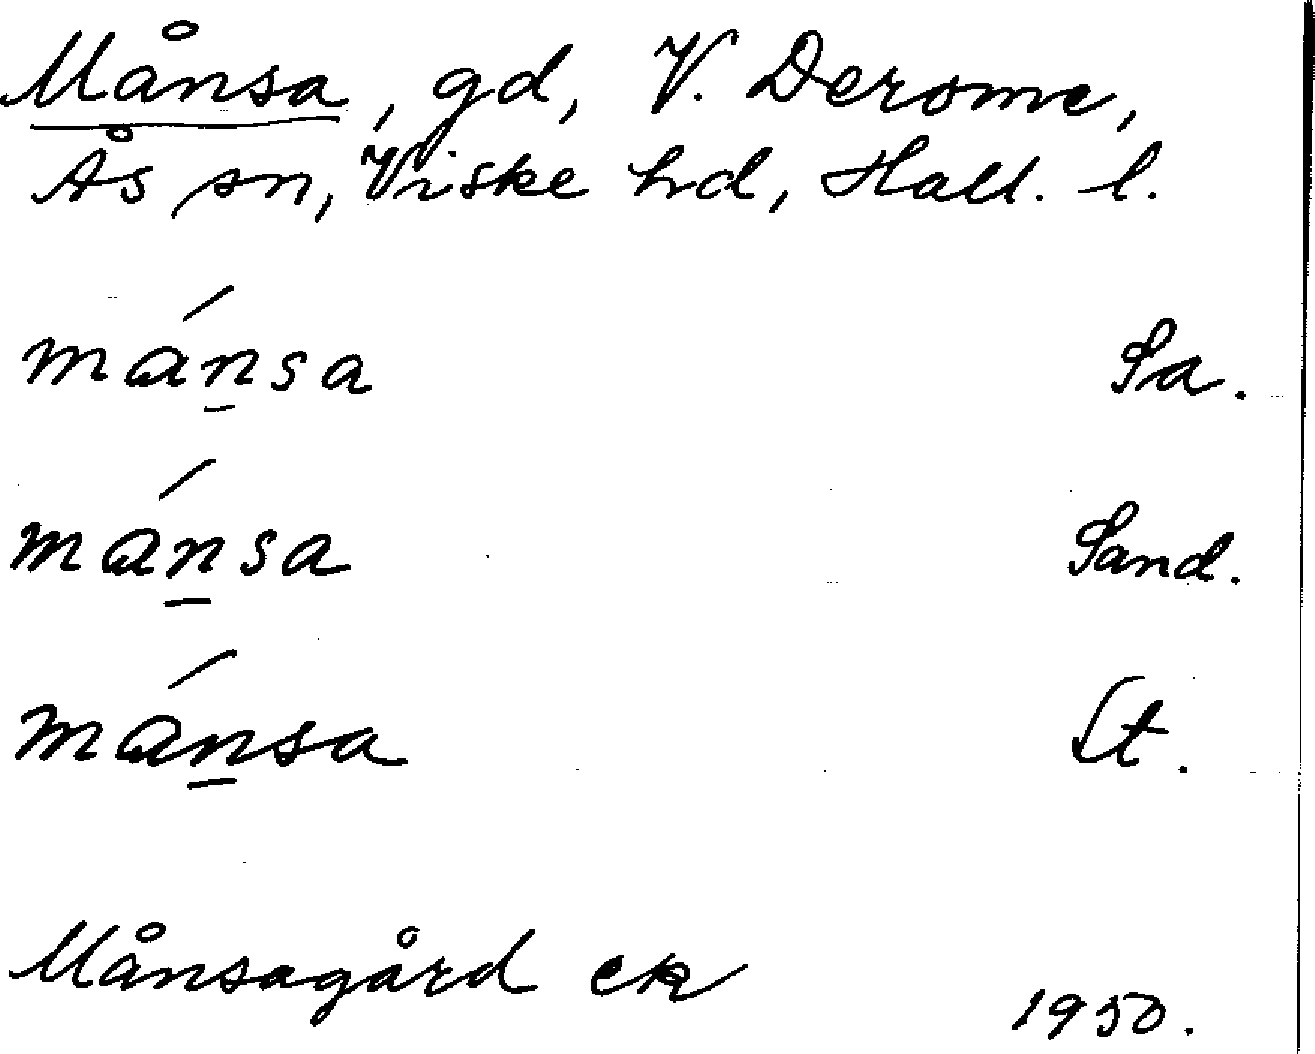 Månsa, gd, V. Derome,
Ås sn, Viske hd, Hall. l.
mánsa Sa.
mánsa Sand.
mánsa St.
Månsagård ek
1950.